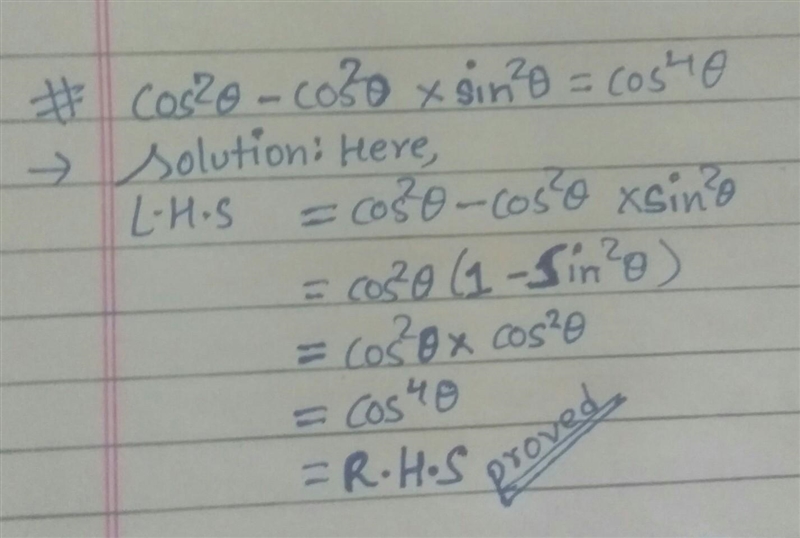 # cos²θ - cos²θ × sin²θ = cos⁴θ
→ Solution: Here,
L.H.S = cos²θ - cos²θ × sin²θ
= cos²θ (1 - Sin²θ)
= cos²θ × cos²θ
= cos⁴θ
= R.H.S proved